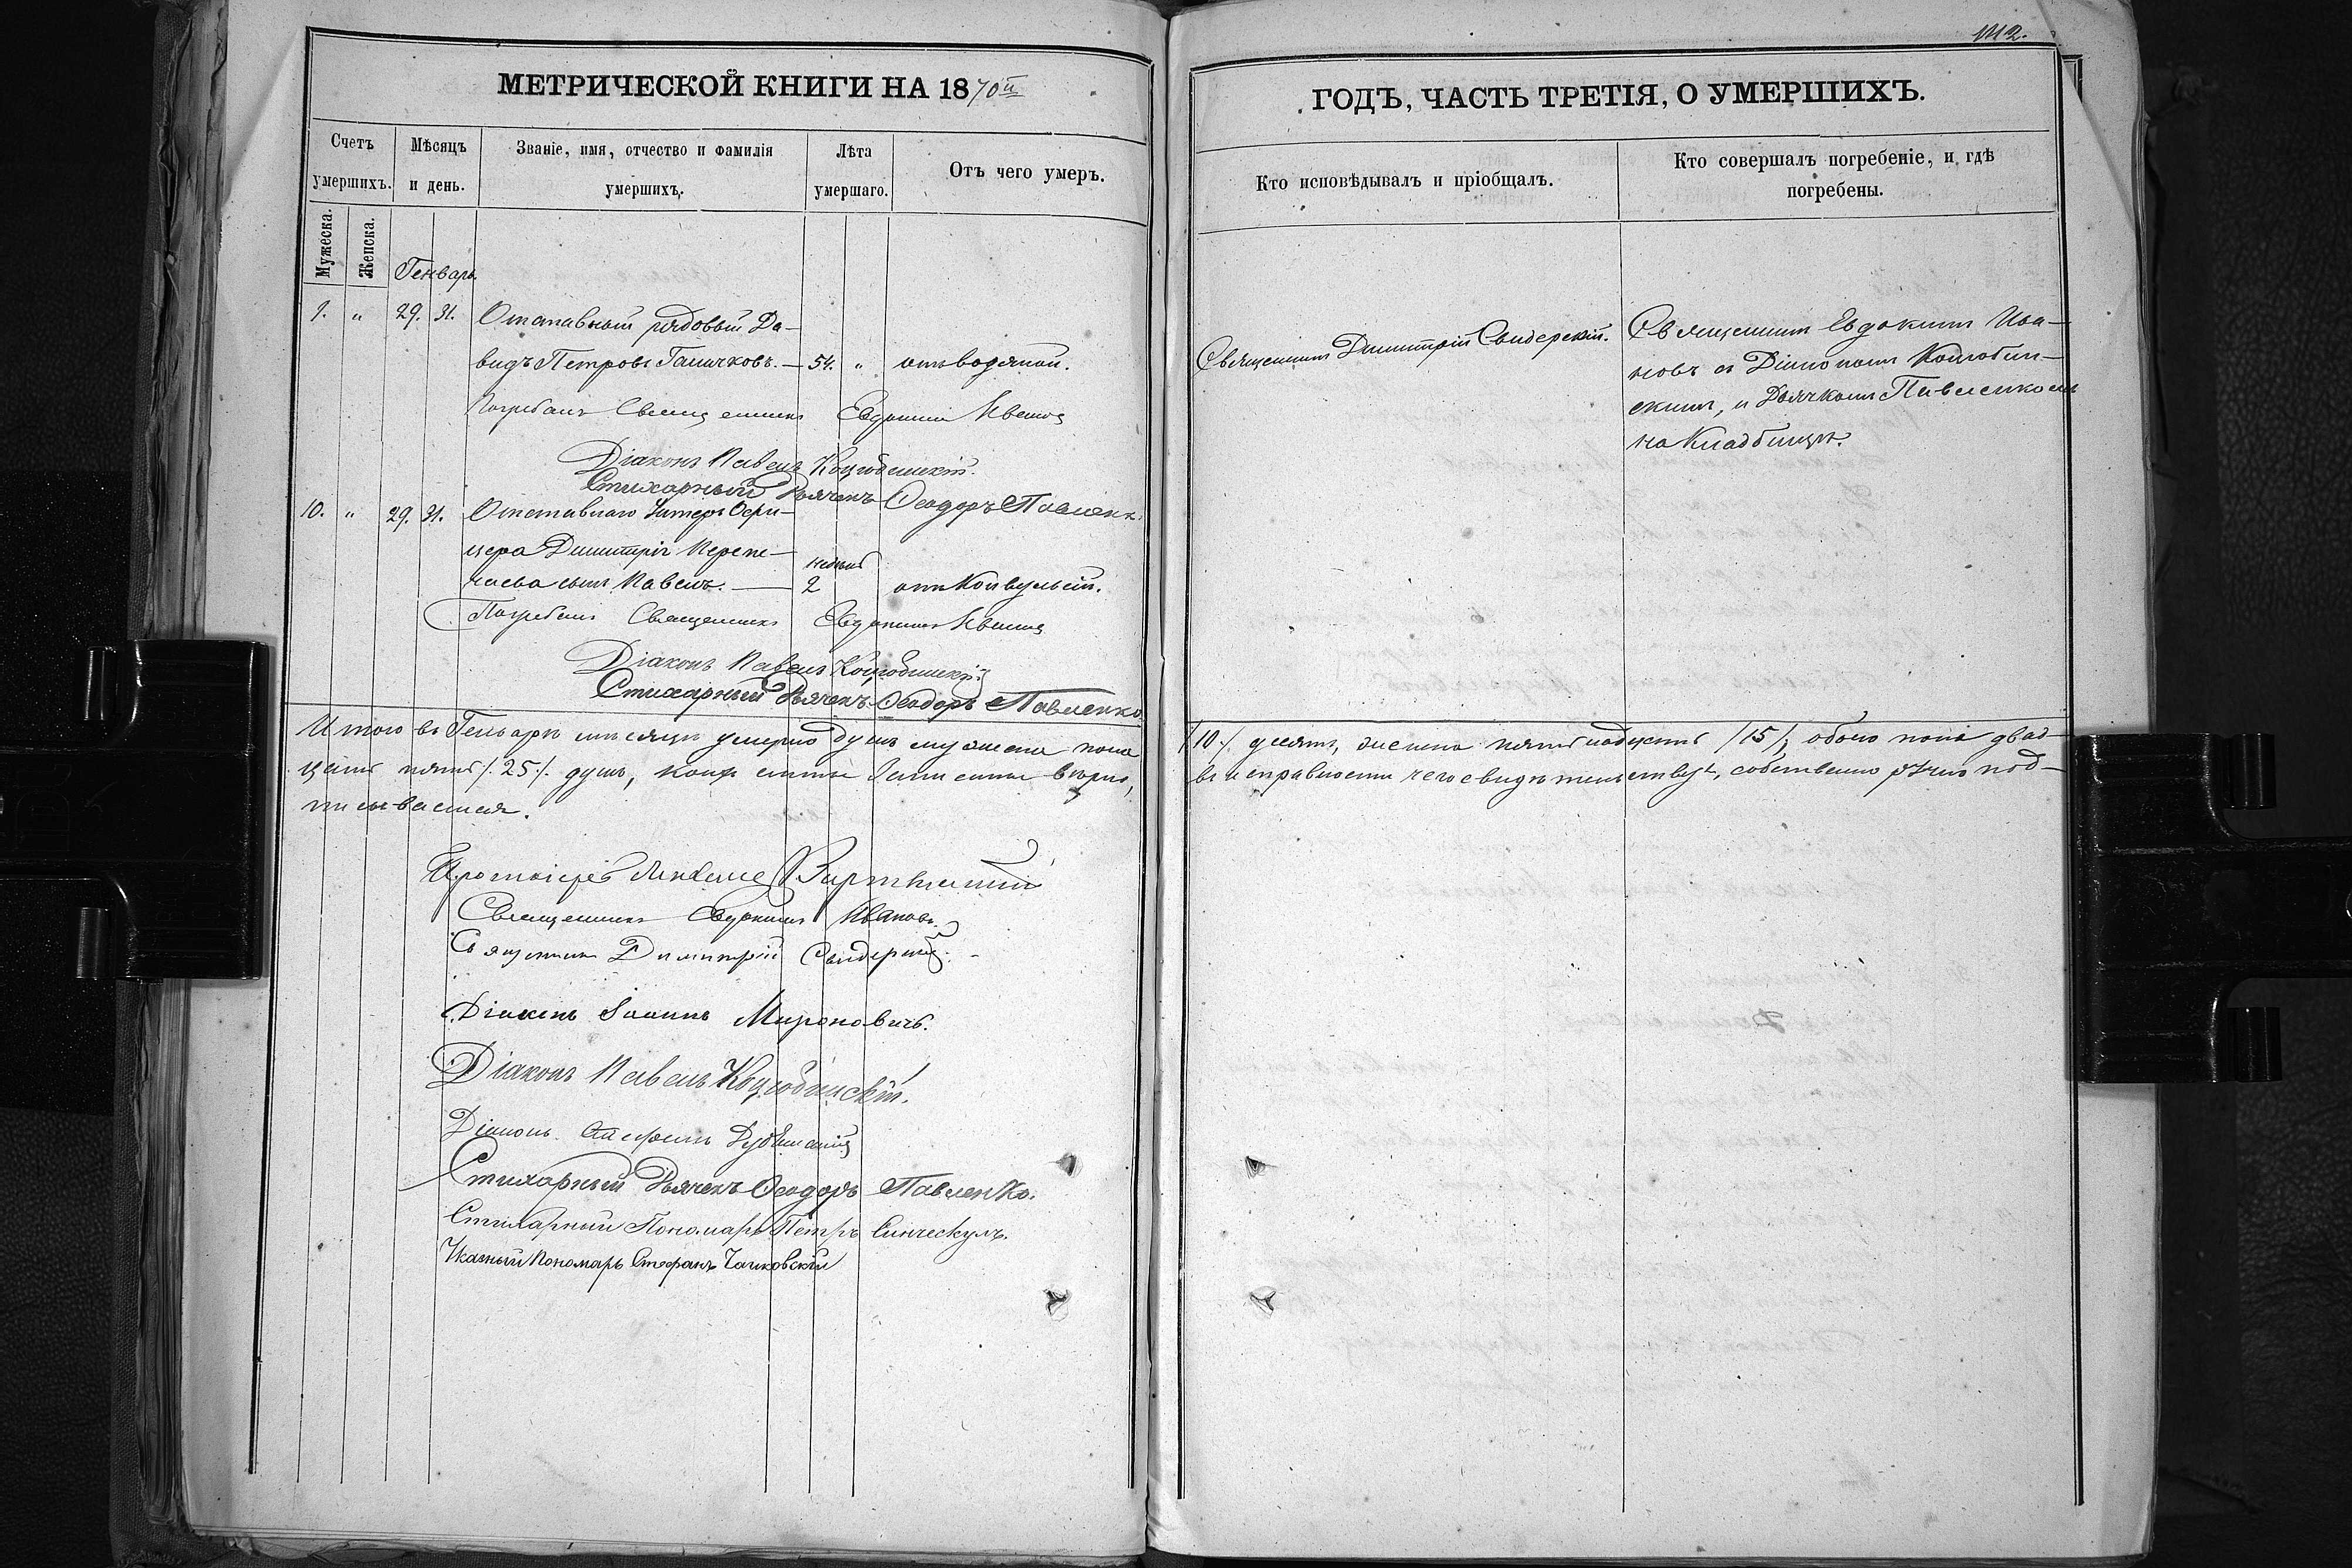 МЕТРИЧЕСКОЙ КНИГИ НА 1870й
Счетъ умершихъ.
Мѣсяцъ и день.
Званіе, имя, отчество и фамилія умершихъ.
Лѣта умершаго.
Отъ чего умеръ.
Мужеска.
Женска.
Генварь.
9. " 29. 31. Отставный рядовый Да-
видъ Петровъ Галичковъ. — 54. " отъ водяной.
Погребалъ Священникъ Евдокимъ Ивановъ
Діаконъ Павелъ
Стихарный Дьячекъ Ѳеодоръ Павленк
10. " 29. 31. Отставнаго Унтеръ Офи-
цера Димитрія
сынъ Павелъ. — 2 недѣль отъ Конвульсій.
Погребалъ Священникъ Евдокимъ Ивановъ
Діаконъ Павелъ
Стихарный Дьячекъ Ѳеодоръ Павленко
Итого въ Генварѣ мѣсяцѣ умерло душъ мужеска пола
цать пять /25/. душъ, вѣрно,
писываемся.
Протоіерей
Священникъ Евдокимъ Ивановъ.
Священникъ Димитрій Свидерскій.
Діаконъ Іоаннъ Мироновичъ.
Діаконъ Павелъ
Діаконъ
Стихарный Дьячекъ Ѳеодоръ Павленко.
Стихарный Пономарь Петръ Синческулъ.
Указный Пономарь Стефанъ Чайковскій
ГОДЪ, ЧАСТЬ ТРЕТІЯ, О УМЕРШИХЪ.
Кто исповѣдывалъ и пріобщалъ.
Кто совершалъ погребеніе, и гдѣ погребены.
Священникъ Димитрій Свидерскій.
Священникъ Евдокимъ Ива-
новъ съ Діакономъ Коцюбин-
скимъ, и Дьячкомъ Павленкомъ
на Кладбищѣ.
/10/ десять, женска пятнадцать /15/, обоего пола двад-
въ исправности чего свидѣтельствуя, собственно ручно под-